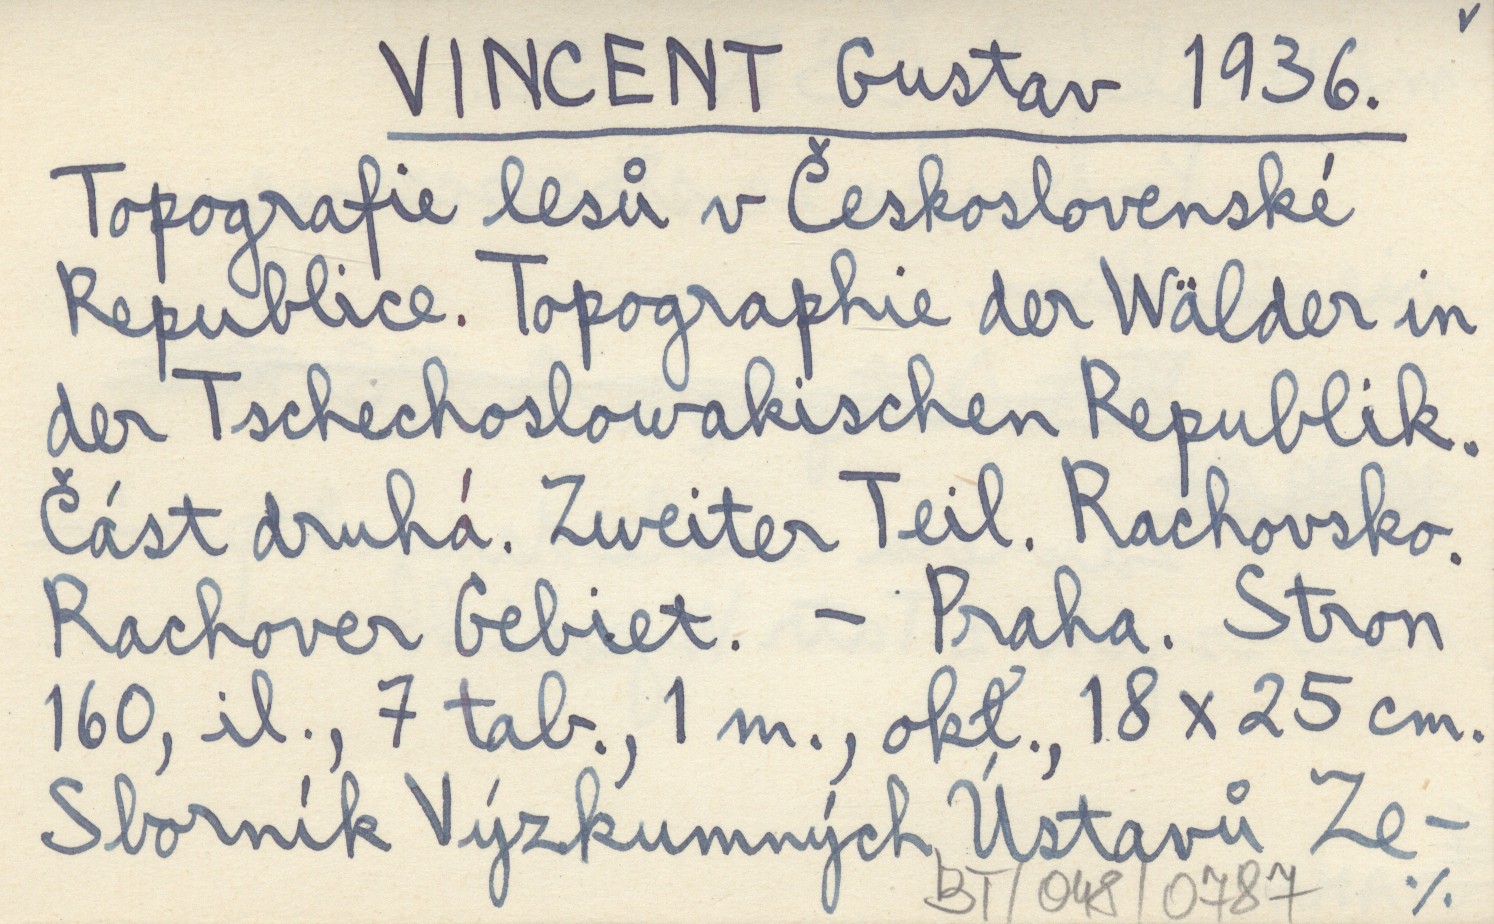 v
VINCENT Gustav 1936.
Topografie lesů v Československé
Republice. Topographie der Wälder in
der Tschechoslowakischen Republik.
Část druhá. Zweiter Teil. Rachovsko.
Rachover Gebiet. – Praha. Stron
160, il., 7 tab., 1 m., okł., 18 x 25 cm.
Sborník Výzkumných Ústavů Ze-
BT/048/0787 ./.